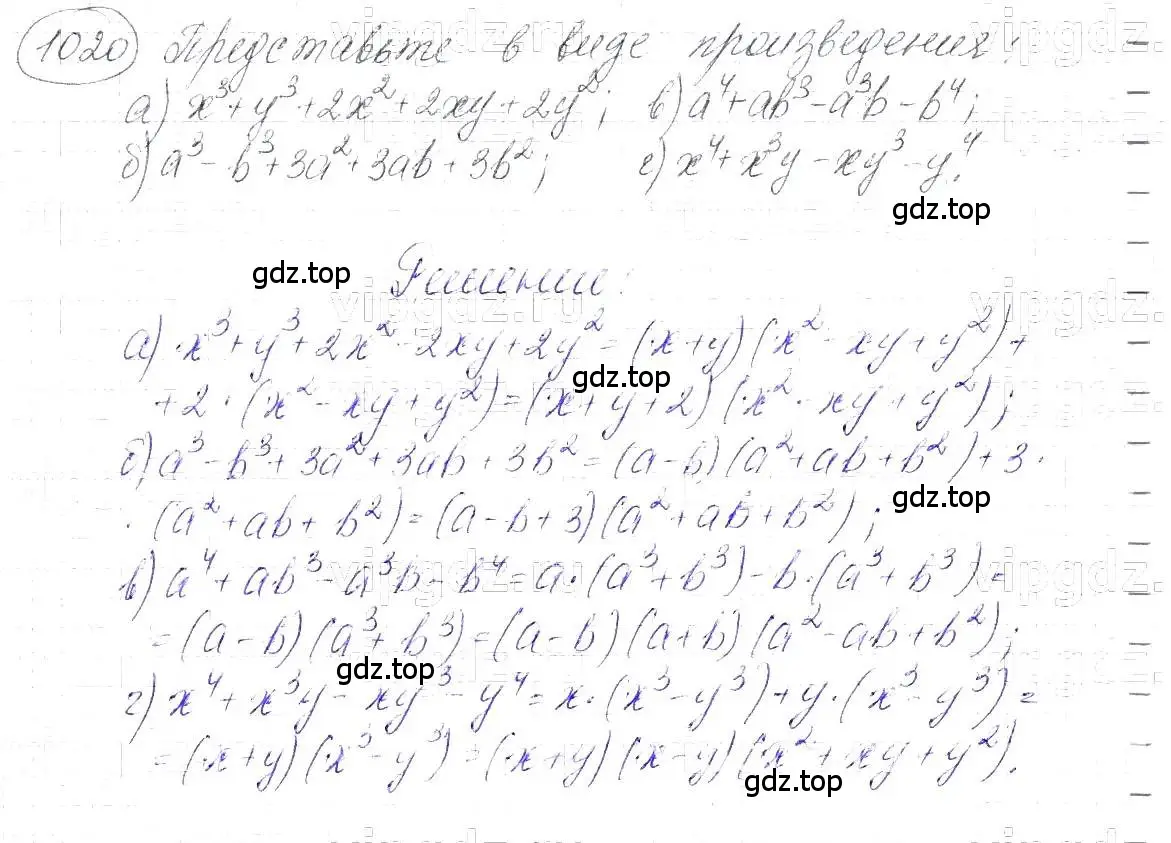 1020 Представьте в виде произведения:
а) x³+y³+2x²+2xy+2y²; в) a⁴+ab³-a³b-b⁴;
б) a³-b³+3a²+3ab+3b²; г) x⁴+x³y-xy³-y⁴.
gdz.top
gdz.top
Решение:
а) x³+y³+2x²-2xy+2y²=(x+y)(x²-xy+y²)+
gdz.top
+2·(x²-xy+y²)=(x+y+2)(x²-xy+y²);
б) a³-b³+3a²+3ab+3b²=(a-b)(a²+ab+b²)+3·
gdz.top
·(a²+ab+b²)=(a-b+3)(a²+ab+b²);
в) a⁴+ab³-a³b-b⁴=a·(a³+b³)-b·(a³+b³)=
=(a-b)(a³+b³)=(a-b)(a+b)(a²-ab+b²);
gdz.top
г) x⁴+x³y-xy³-y⁴=x·(x³-y³)+y·(x³-y³)=
=(x+y)(x³-y³)=(x+y)(x-y)(x²+xy+y²).
gdz.top